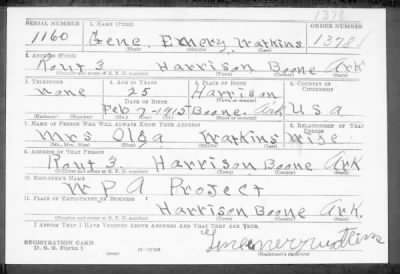 1378
SERIAL NUMBER 1. NAME (Print) ORDER NUMBER
1160 Gene Emory Watkins 1378
(First) (Middle) (Last)
2. ADDRESS (Print)
Rout 3 Harrison Boone Ark
(Number and street or R. F. D. number) (Town) (County) (State)
3. TELEPHONE 4. AGE IN YEARS 5. PLACE OF BIRTH 6. COUNTRY OF CITIZENSHIP
none 25 Harrison
DATE OF BIRTH (Town or county)
Feb-7-1915 Boone. Ark U S A
(Mo.) (Day) (Yr.) (State or country)
7. NAME OF PERSON WHO WILL ALWAYS KNOW YOUR ADDRESS 8. RELATIONSHIP OF THAT PERSON
Mrs Olga Watkins wife
(Mr., Mrs., Miss) (First) (Middle) (Last)
9. ADDRESS OF THAT PERSON
Rout 3 Harrison Boone Ark
(Number and street or R. F. D. number) (Town) (County) (State)
10. EMPLOYER'S NAME
W P A Project
11. PLACE OF EMPLOYMENT OR BUSINESS
Harrison Boone Ark.
(Number and street or R. F. D. number) (Town) (County) (State)
I AFFIRM THAT I HAVE VERIFIED ABOVE ANSWERS AND THAT THEY ARE TRUE.
REGISTRATION CARD
D. S. S. Form 1
16-17105
Gene emery watkins
(Registrant's signature)